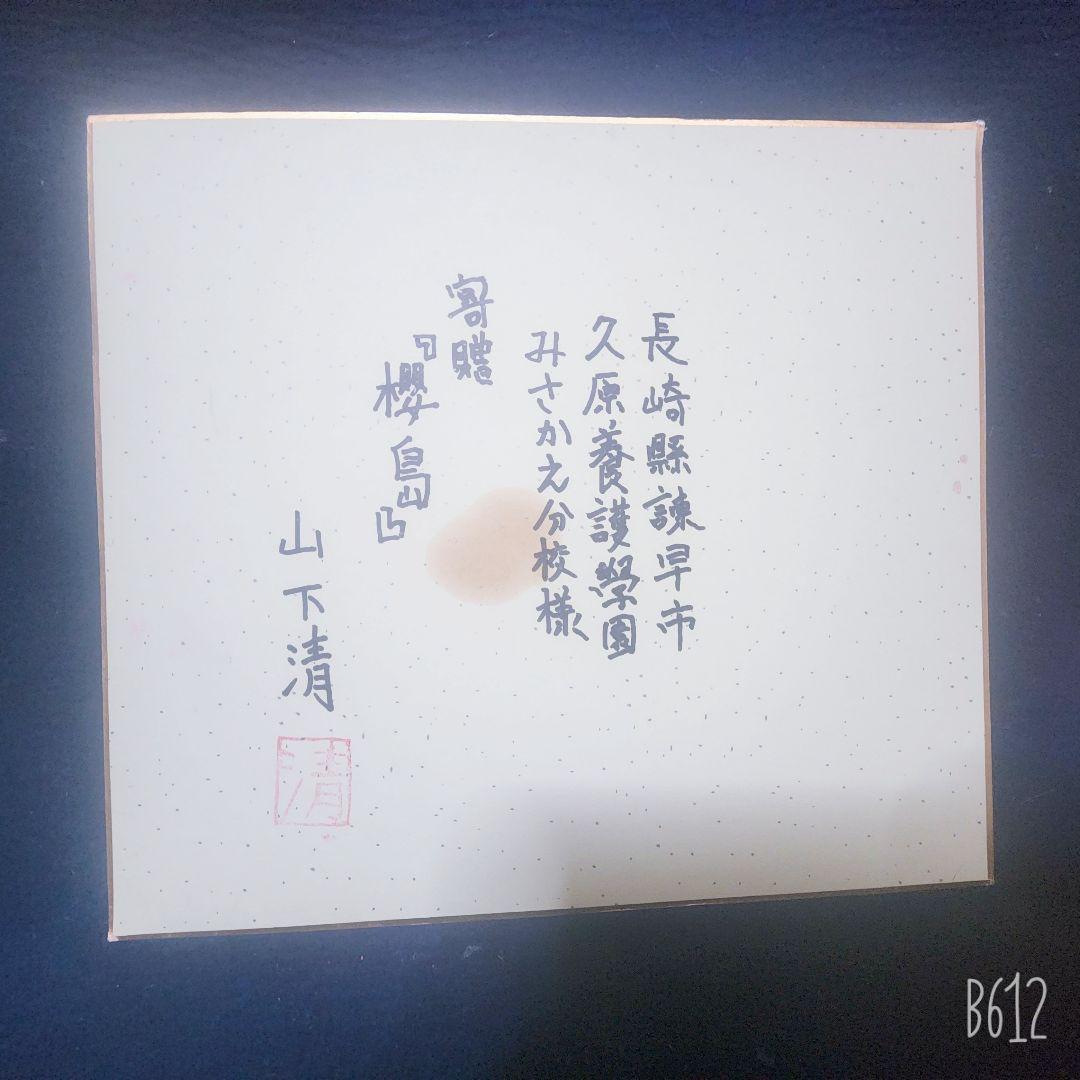 長崎縣諫早市
久原養護學園
みさかえ分校様
寄贈
『櫻島』
山下清
清
B612